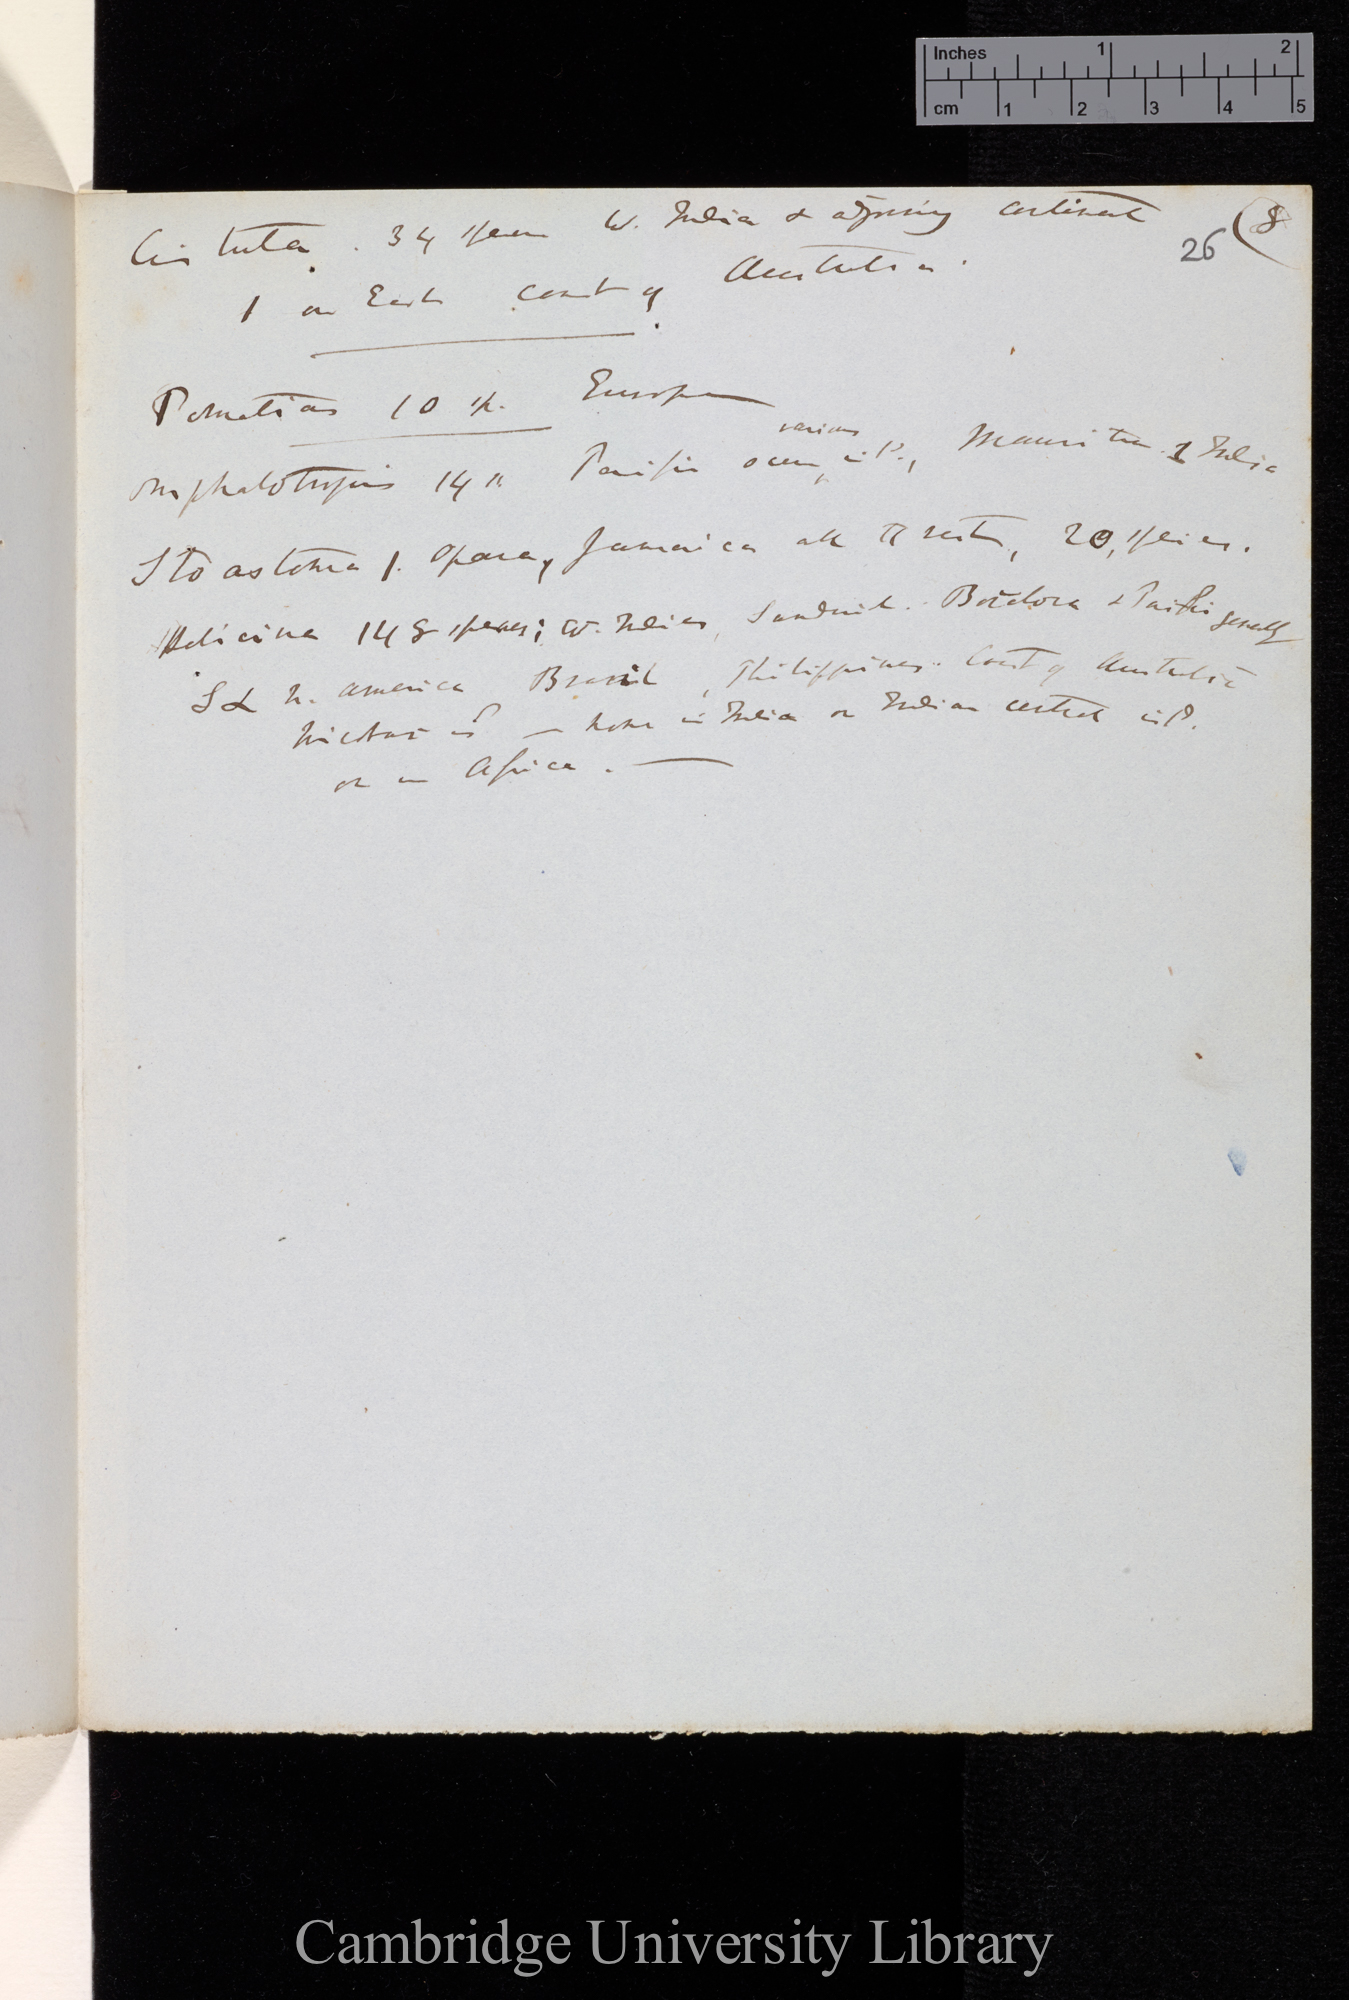 Inches 1 2
cm 1 2 3 4 5
(8
26
Cistula. 34 species W. Indies & adjoining continent
1 on East coast of Australia.
Pomatias 10 sp. Europe
various
Omphalotropis 14 Pacific ocean, isld., Mauritius 1 India
Stoastoma 1. Jamaica all the rest, 20, species.
Helicina 148 species; W. Indies, Sandwich. & Pacific generally
S & N. America Brazil, Philippines. Coast of Australia
Nicobar isd — none in India or Indian isld.
or in Africa. —
Cambridge University Library